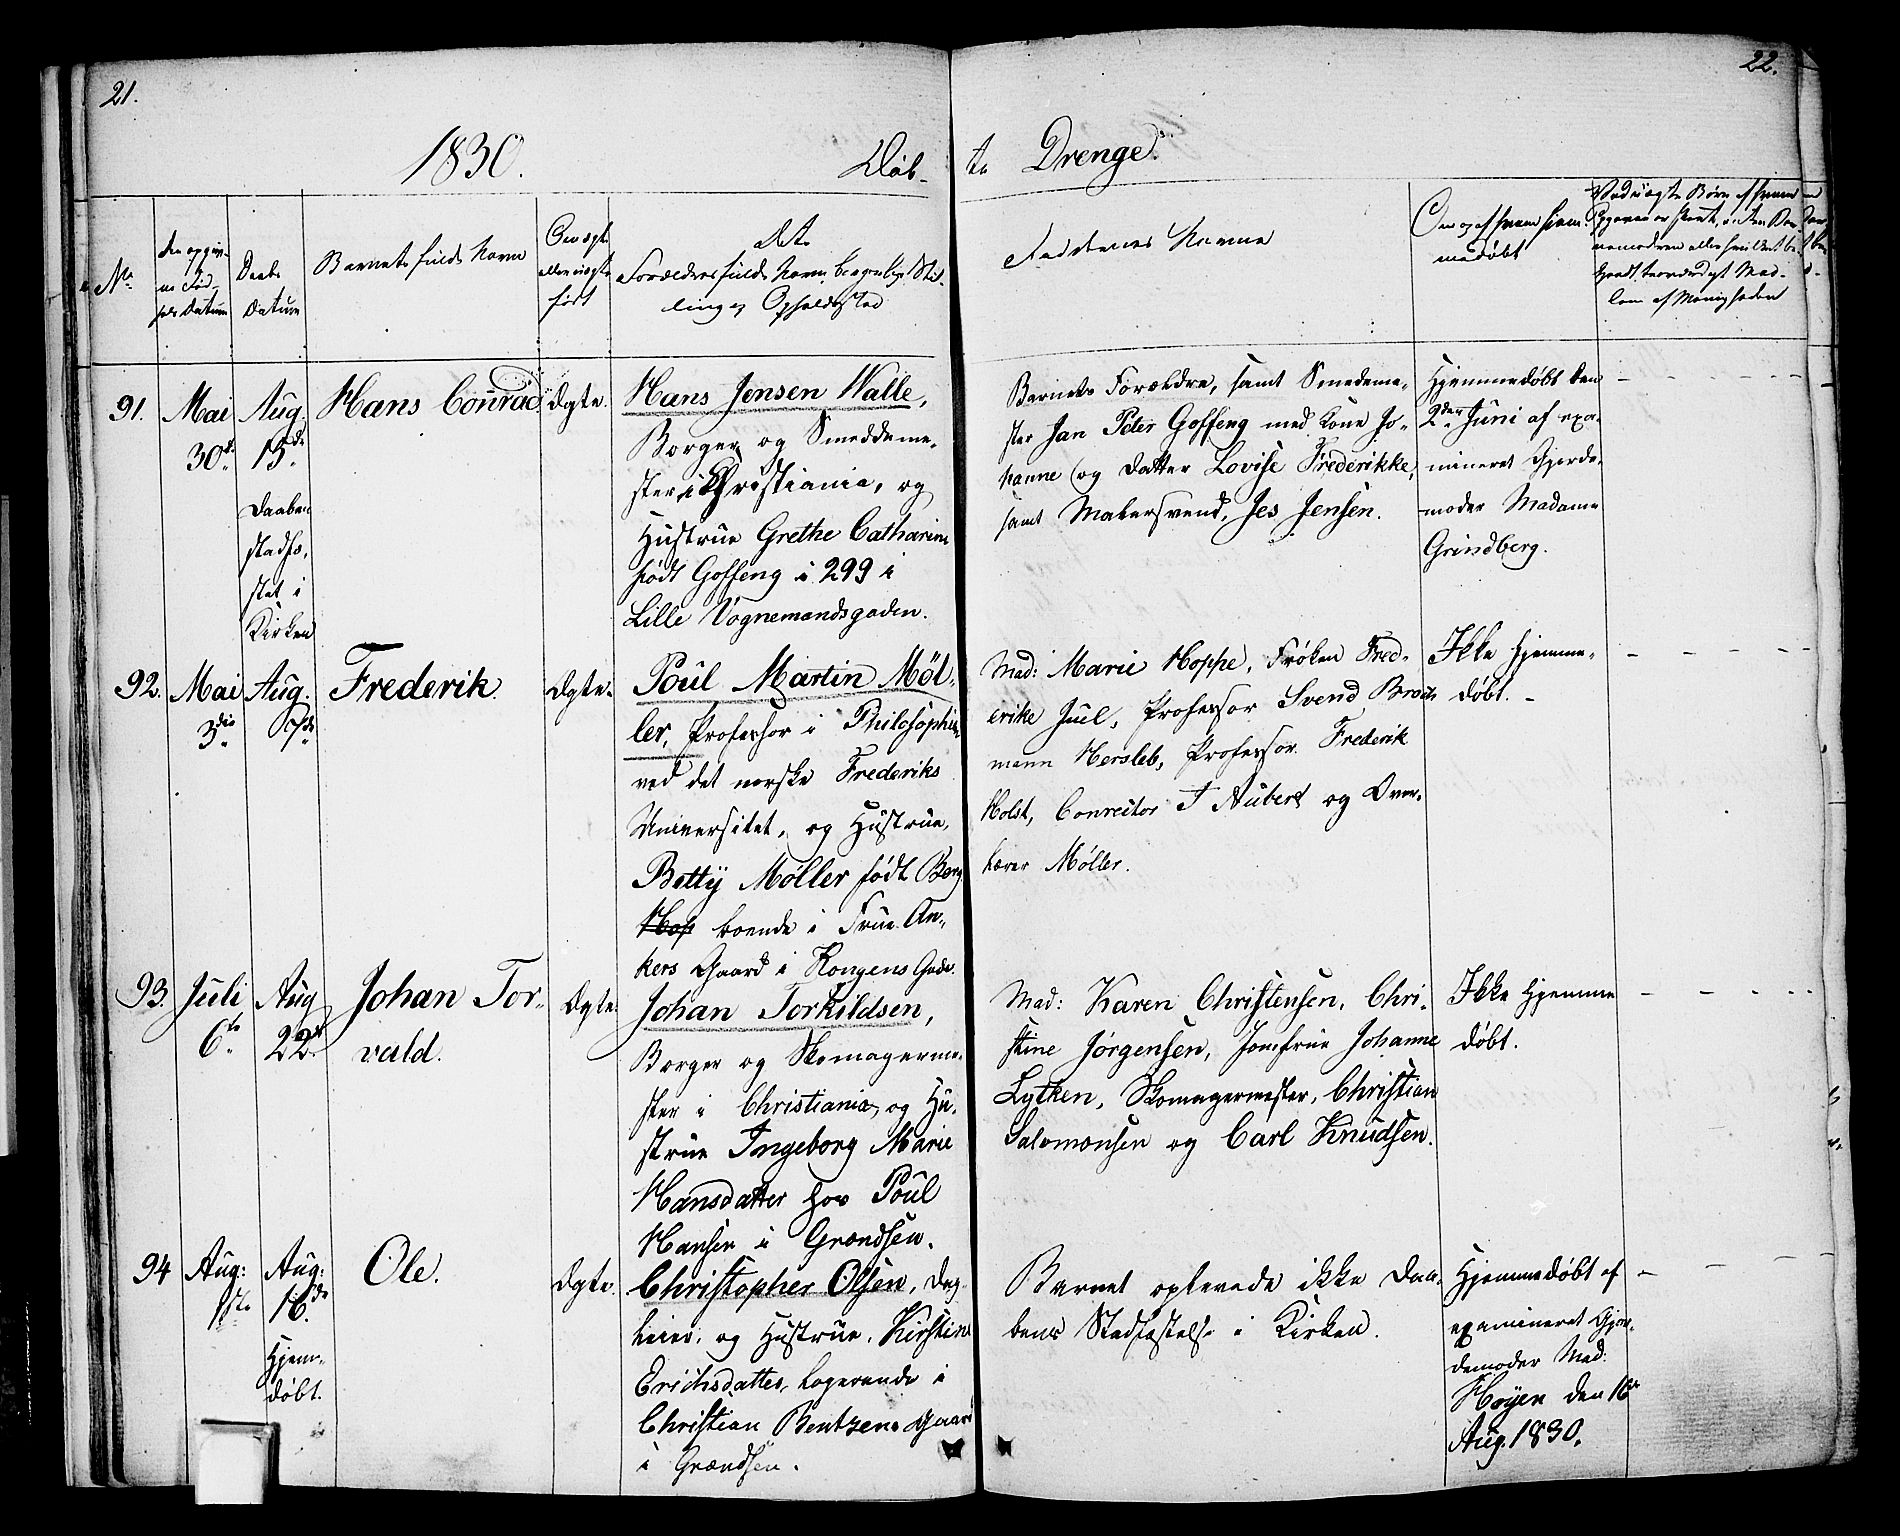 21.
22.
1830.
Døb-
te Drenge.
No
Den opgiv-
ne Fød-
sels Datum
Daabs
Datum
Barnets fulde Navn
Om ægte
eller uægte
født
Det
Forældres fulde Navn, borgerlige Stil-
ling og Opholdssted
Faddernes Navne
Om og af hvem hjem-
medøbt
Ved uægte Børn af hvem
91.
Mai
30te
Aug.
15de
Daaben
stadfæ-
stet i
Kirken
Hans Conrad
Ægte.
Hans Jensen Walle,
Borger og Smeddeme-
ster i Christiania, og
Hustrue Grethe Catharine
født Goffeng i 299 i
Lille Vognemandsgaden.
Barnets Forældre, samt Smedeme-
ster Jan Peter Goffeng med Kone Jo-
hanne (og Datter Lovise Frederikke,
samt Malersvend, Jes Jensen.
Hjemmedøbt den
2den Juni af exa-
mineret Gjorde-
moder Madame
Grindberg.
92.
Mai
3die
Aug.
Frederik.
Ægte.
Poul Martin Møl-
ler, Professor i Philosophien
ved det norske Frederiks
Universitet, og Hustrue,
Betty Møller født Berg
boende i Frue An-
kers Gaard i Kongens Gade.
Mad: Marie Hoppe, Frøken Fred-
erike Juel, Professor Svend Broch-
mann Hersleb, Professor Frederik
Holst, Conrector J Aubert og Over-
lærer Møller.
Ikke hjemme-
døbt. -
93.
Juli
6te
Aug
22de
Johan Tor-
vald.
Ægte.
Johan Torkildsen,
Borger og Skomagerme-
ster i Christiania, og Hu-
strue Ingeborg Marie
Hansdatter hos Poul
Hansen i Grændsen.
Mad: Karen Christensen, Chri-
stine Jørgensen, Jomfrue Johanne
Lytken, Skomagermester, Christian
Salomonsen og Carl Knudsen.
Ikke hjemme
døbt.
94
Aug:
1ste
Aug:
16de
Hjem-
døbt.
Ole.
Ægte.
Christopher Olsen, Dag-
leier, og Hustrue, Kirstine
Erichsdatter, logerende i
Christian Bentzens Gaard
i Grændsen.
Barnet oplevede ikke Daa-
bens Stadfæstelse i Kirken.
Hjemmedøbt af
examineret Gjor-
demoder Mad:
Høyer den 16de
Aug. 1830.